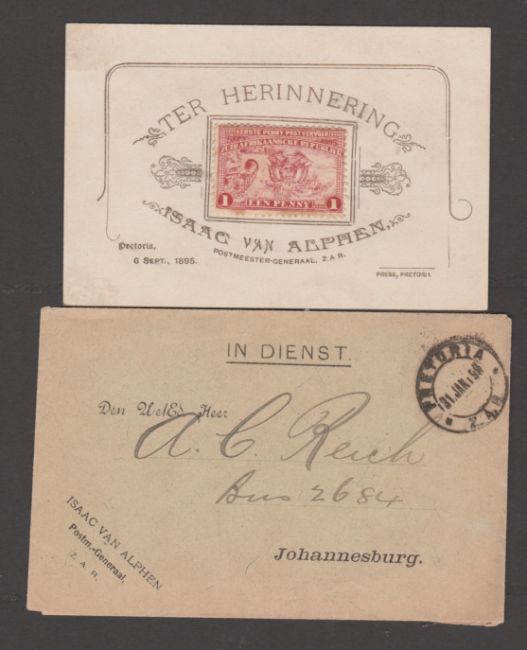 TER HERINNERING
EERSTE PENNY POSTVERVOER
ZUID AFRIKAANSCHE REPUBLIEK
1 EEN PENNY 1
ISAAC VAN ALPHEN,
POSTMEESTER-GENERAAL, Z.A.R.
Pretoria,
6 SEPT., 1895.
PRESS, PRETORIA
IN DIENST.
PRETORIA
Z.A.R
Den UelEd Heer
A. C. Reich
Bus 2684
Johannesburg.
ISAAC VAN ALPHEN
Postm.-Generaal,
Z. A. R.